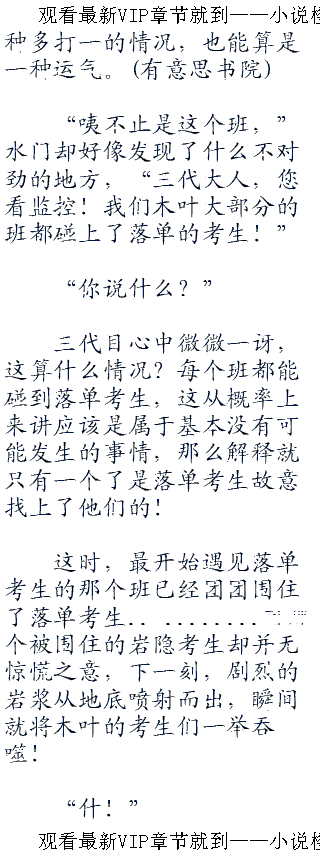 观看最新VIP章节就到——小说楼
种多打一的情况，也能算是
一种运气。(有意思书院)
“咦不止是这个班，”
水门却好像发现了什么不对
劲的地方，“三代大人，您
看监控！我们木叶大部分的
班都碰上了落单的考生！”
“你说什么？”
三代目心中微微一讶，
这算什么情况？每个班都能
碰到落单考生，这从概率上
来讲应该是属于基本没有可
能发生的事情，那么解释就
只有一个了是落单考生故意
找上了他们的！
这时，最开始遇见落单
考生的那个班已经团团围住
了落单考生.. .........
个被围住的岩隐考生却并无
惊慌之意，下一刻，剧烈的
岩浆从地底喷射而出，瞬间
就将木叶的考生们一举吞
噬！
“什！”
观看最新VIP章节就到——小说